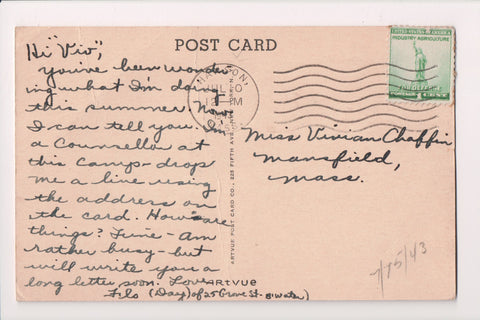 POST CARD
Hi "Viv",
you've been wonder-
ing what I'm doing
this summer. Now
I can tell you. I'm
a Counsellor at
this Camp - drop
me a line using
the address on
the card. How are
things? Fine - Am
rather busy - but
will write you a
long letter soon. Love
Flo (Day) of 25 Grove St.
ARTVUE
ARTVUE POST CARD CO., 225 FIFTH AVE.,
UNITED STATES OF AMERICA
INDUSTRY AGRICULTURE
FOR DEFENSE
Miss Vivian Chaffin
Mansfield,
Mass.
7/15/43